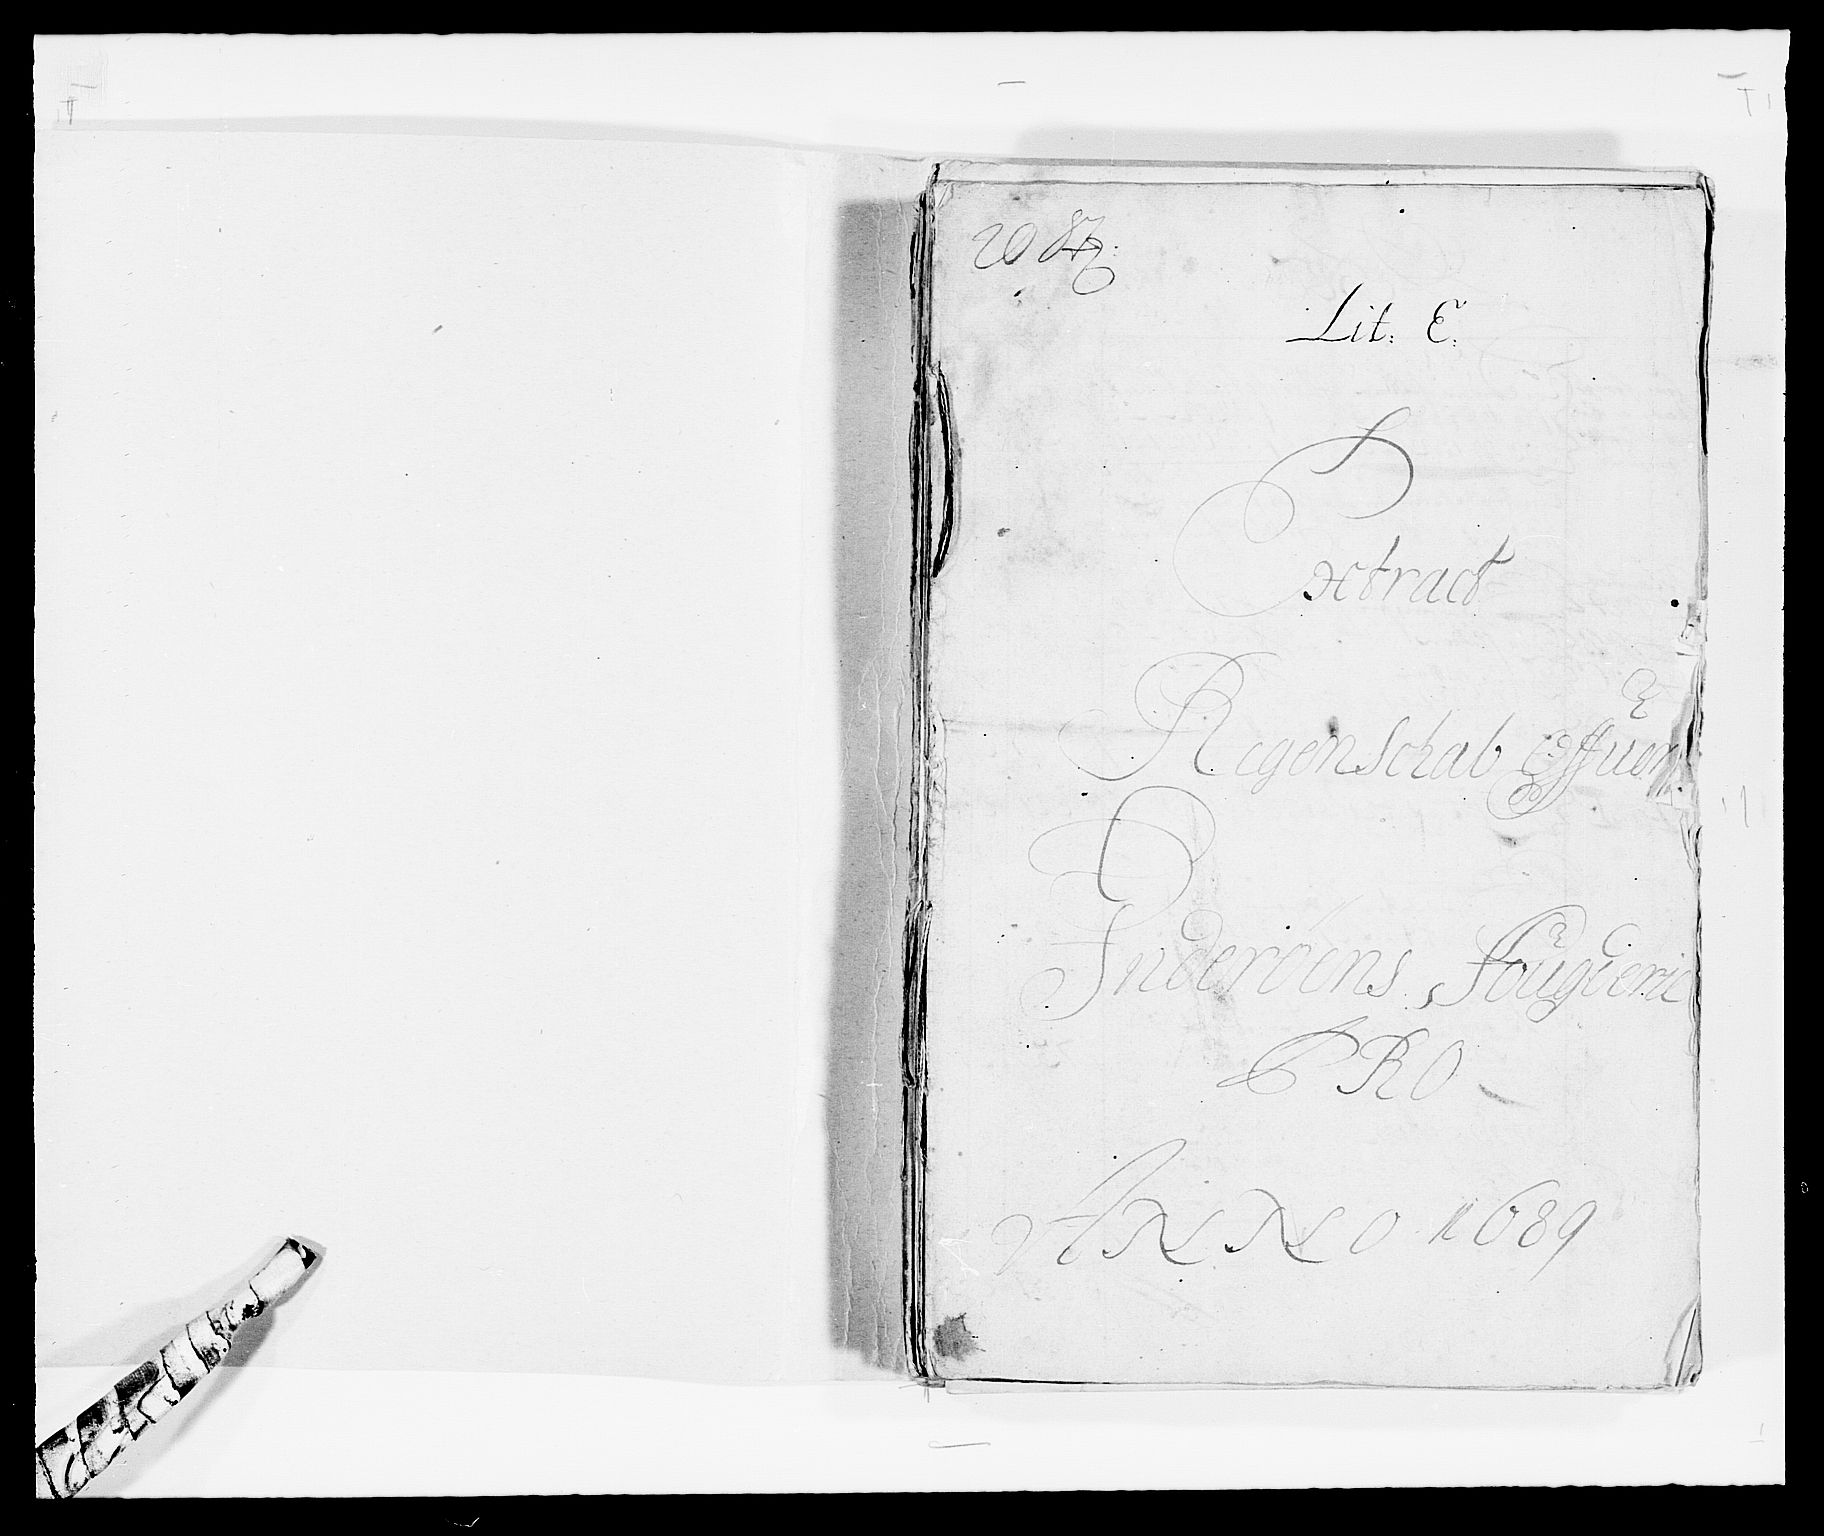 Lit. E.
Extract
Regenschab offuer
Inderöens Fougderie
PRO
ANNO 1689